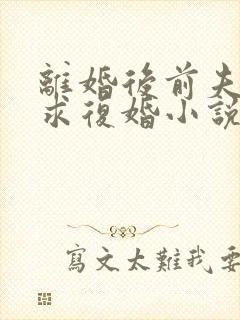 離婚後前夫
求復婚小說
寫文太難我要